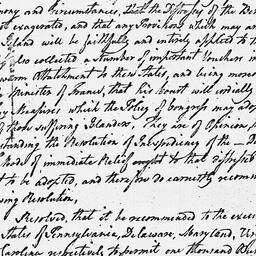 mony and Circumstances, that the Distresses of the Ber
not exagerated, and that any Provisions which may an
Island will be faithfully and entirely applied to t
also collected a Number of important Vouchers in
warm Attachment to these States, and being more
Minister of France, that his Court will cordially
any Measures which the Policy of Congress may adop
of those suffering Islanders, They are of Opinion,
standing the Resolution of Inexpediency of the
these of immediate Relief ought to that distressed
to be adopted, and therefore do earnestly recomm
owing Resolution,
Resolved, that it be recommended to the execu
States of Pennsylvania, Delaware, Maryland, Vir
Carolina respectively to permit one thousand Bus